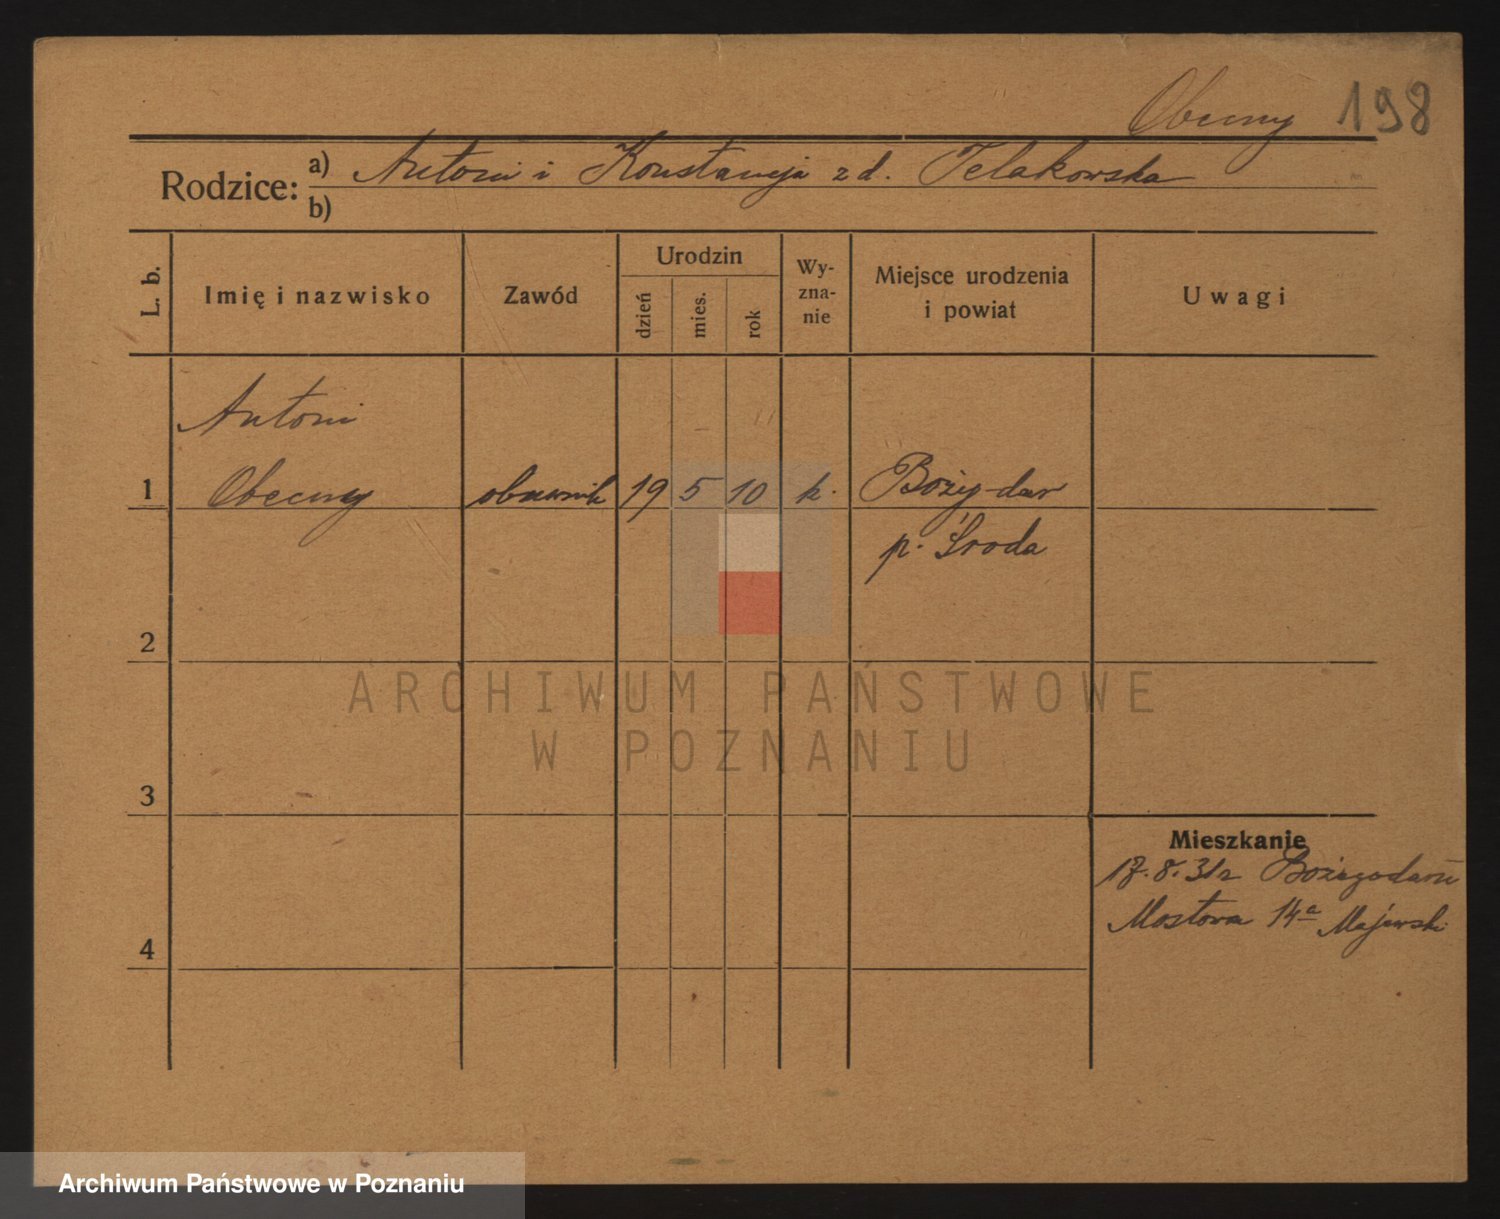 Obecny 198
Rodzice: a) Antoni i Konstancja z d. Telakowska
b)
L. b. Imię i nazwisko Zawód Urodzin dzień mies. rok Wy-zna-nie Miejsce urodzenia i powiat Uwagi
Antoni
1 Obecny obuwnik 19 5 10 k. Bożydar
p. Środa
2
ARCHIWUM PAŃSTWOWE
W POZNANIU
3
Mieszkanie
17.8.31 r
Mostowa 14a Majewski
4
Archiwum Państwowe w Poznaniu